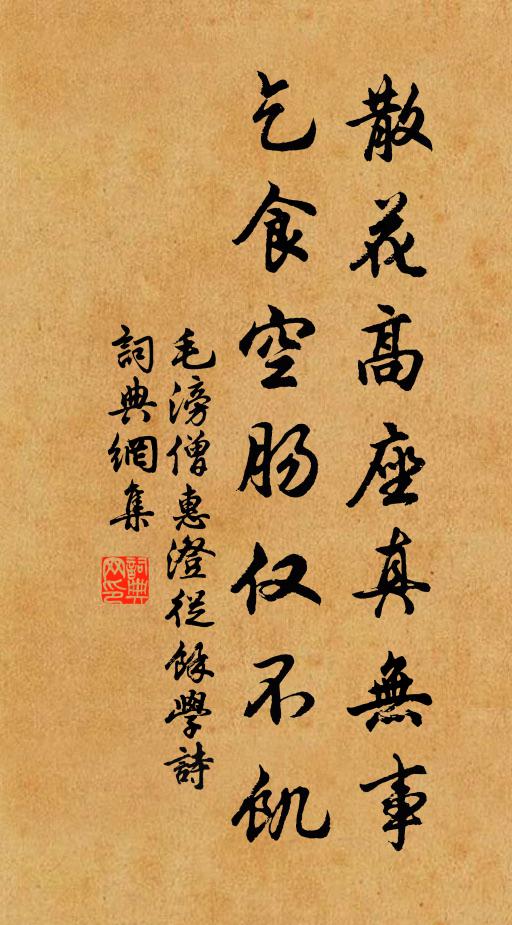 散花高座真無事
乞食空肠仅不飢
毛滂僧惠澄從馀學詩
詞典網集
詞典网印